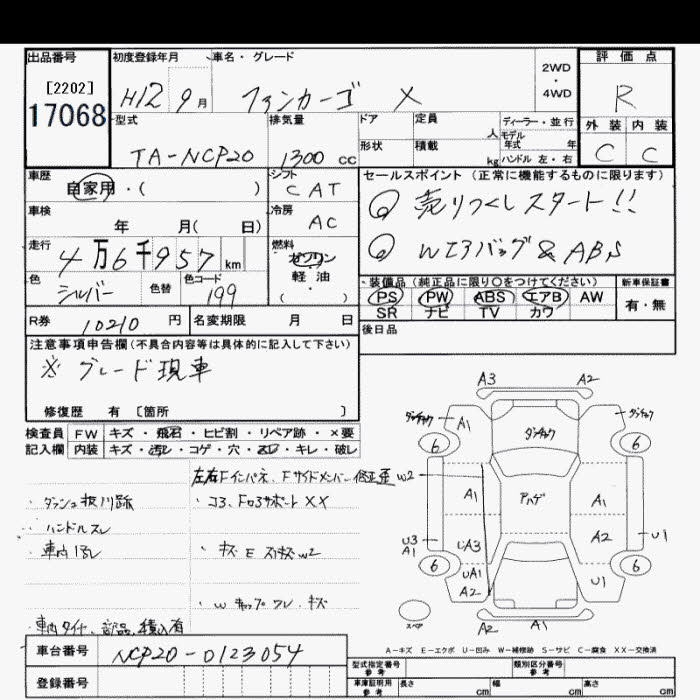 出品番号 初度登録年月 車名・グレード 2WD・4WD 評価点
[2202]
17068
H12 9月 ファンカーゴ X R
型式 排気量 ドア 定員 人 ディーラー・並行 外装 内装
モデル年式 年
TA-NCP20 1300cc 形状 積載 kg ハンドル 左・右 C C
車歴 シフト セールスポイント (正常に機能するものに限ります)
自家用・( ) CAT
◎ 売りつくしスタート!!
車検 冷房
年 月( 日) AC
◎ Wエアバッグ & ABS
走行 燃料
4万6千957km ガソリン
軽油
・( )
色 色替 色コード
シルバー 199
・装備品 (純正品に限り○をつけてください) 新車保証書
PS PW ABS エアB AW 有・無
SR ナビ TV カワ
R券 10210円 名変期限 月 日 後日品
注意事項申告欄 (不具合内容等は具体的に記入して下さい)
※ グレード現車
修復歴 有 〔箇所 〕
検査員 FW キズ・飛石・ヒビ割・リペア跡・×要
記入欄 内装 キズ・汚レ・コゲ・穴・スレ・キレ・破レ
左右Fインパネ、Fサイドメンバー修正歪
・ハンドルスレ
・キズ E スリキズ W2
・W キャップ ワレ、キズ
A3 A2
A1
6 6
W2
A1 A1
A2
U3 A1 U1
UA3
UA1
A2 U1
6 6
スペア
A2 A1
A-キズ E-エクボ U-凹み W-補修跡 S-サビ C-腐食 XX-交換済
車台番号 NCP20-0123054
登録番号
型式指定番号 参考 類別区分番号 参考
車庫証明用 参考 長さ cm 幅 cm 高さ cm